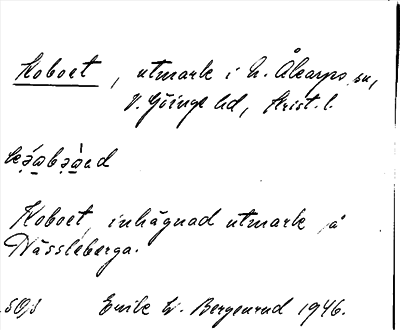 Koboet, utmark i N. Åkarps sn,
V. Göinge hd, Krist. l.
Koboet, inhägnad utmark på
Nässleberga.
Erik W. Bergenrud 1946.